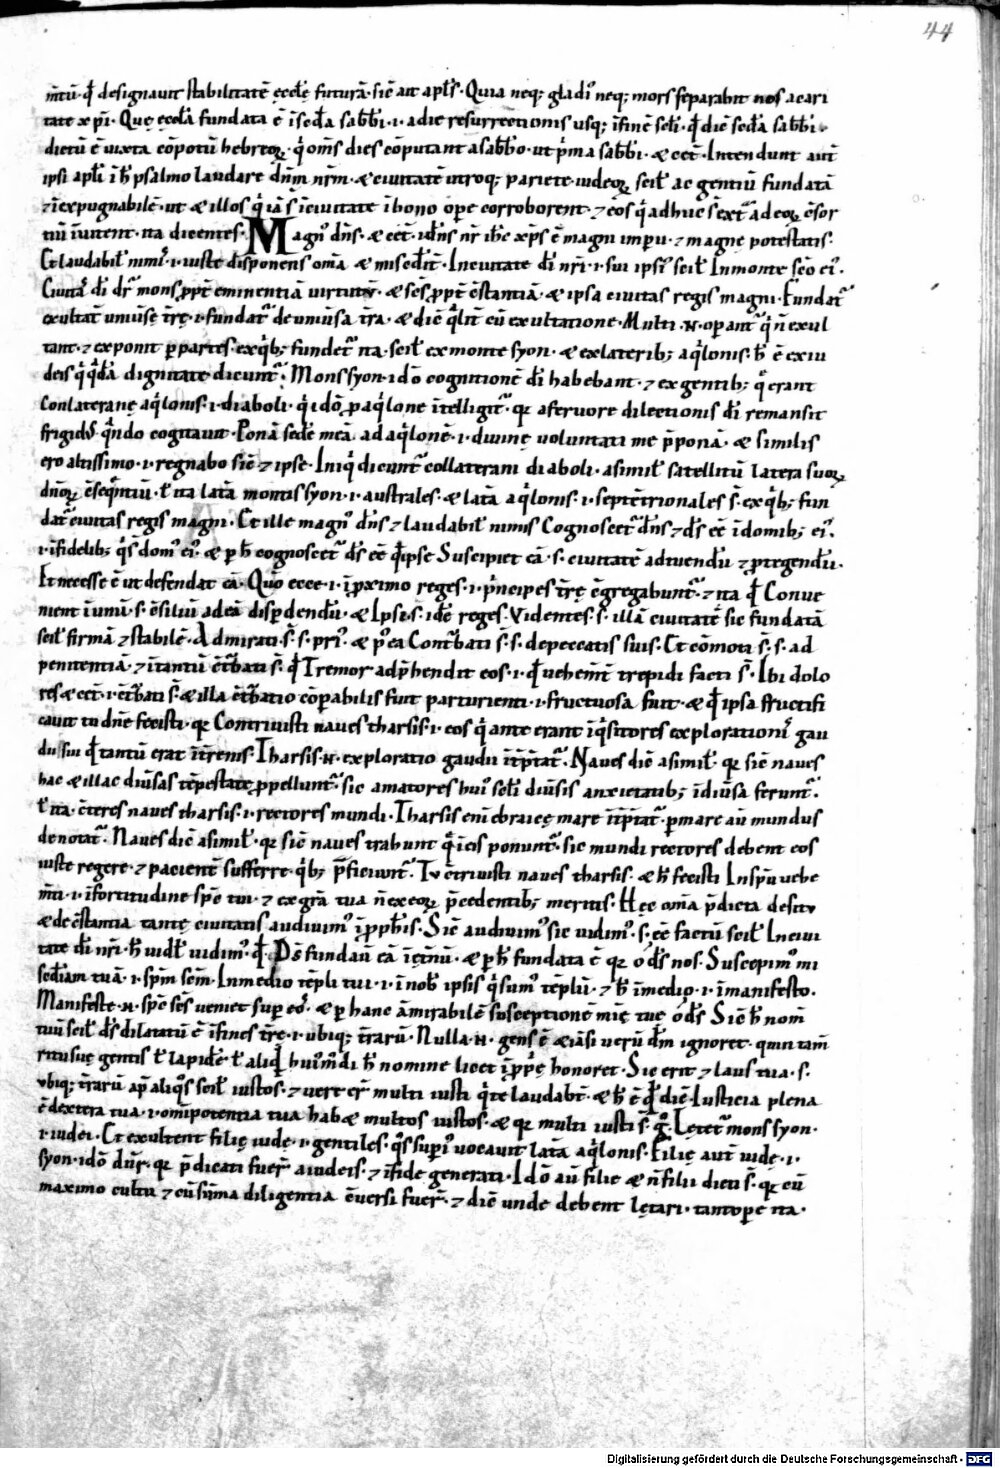 44
m̄tū · ꝙ designauit stabilitatē ęcclę futurā · sic̄ ait apls̄ · Quia neq; gladiꝰ neq; mors separabit nos a cari
tate xp̄i · Quę ęccl̄a fundata ē ī scd̄a sabb̄i · i · a die resurrectionis usq; ī finē scl̄i · ꝙ diē scd̄a sabb̄i ·
dictū ē iuxta cōpotū hebreoꝝ · q̄ om̄s dies cōputant a sabb̄o · ut p̄ma sabb̄i · & cet̄ · Intendunt aut̄
ipsi apl̄i ī h̄ psalmo laudare dn̄m nr̄m · & ciuitatē utroq; pariete · iudeoꝝ scil̄ ac gentiū fundatā
⁊ inexpugnabilē · ut & illos q̄ iā s̄ ī ciuitate ī bono op̄e corroborent · ⁊ eos q̄ adhuc s̄ ext̄ ad eoꝝ c̄sor
tiū īuitent · ita dicentes · Magnꝰ dn̄s · & cet̄ · i dn̄s nr̄ ih̄c xp̄s ē magni imp̄ii · ⁊ magnę potestatis ·
Et laudabil̄ nimiꝰ · i · iuste disponens om̄a & misc̄dit̄ · In ciuitate dī nr̄i · i · sui ipsiꝰ scil̄ In monte sc̄o eiꝰ ·
Ciuitaꝰ dī dr̄ mons ꝓpt̄ eminentiā uirtutū · & sc̄s ꝓpt̄ c̄stantiā · & ipsa ciuitas regis magni · Fundat̄
exultat̄ uniuersę tr̄ę · i · fundat̄ de uniuersa tr̄a · & diē q̄lit̄ cū exultatione · Multi · n · opant̄ q̄ n̄ exul
tant · ⁊ exponit p partes · ex q̄b; fundet̄ ita · scil̄ ex monte syon · & ex laterib; aq̄lonis · h̄ ē ex iu
deis q̄ q̄dā dignitate dicunt̄ · Mons syon · idō cognitionē dī habebant · ⁊ ex gentib; q̄ erant
conlateranę aq̄lonis · i · diaboli · q̄ idō p aq̄lone ītelligit̄ · qꝛ a feruore dilectionis dī remansit
frigidꝰ q̄ndo cogitauit · Ponā sedē meā ad aq̄lonē · i · diuinę uoluntati me p̄ponā · & similis
ero altissimo · i · regnabo sic̄ ⁊ ipse · Iniq̄ dicunt̄ collaterani diaboli · a simil̄ satellitū latera suoꝝ
dn̄oꝝ c̄seq̄ntiū · ł ita latā montis syon · i · australes · & latā aq̄lonis · i · septētrionales s̄ · ex q̄b; fun
dat̄ ciuitas regis magni · Et ille magnꝰ dn̄s ⁊ laudabil̄ nimis Cognoscet̄ dn̄s ⁊ ds̄ eē ī domib; eiꝰ ·
i · īfidelib; q̄ s̄ domꝰ eiꝰ · & p h̄ cognoscet̄ ds̄ eē q̄ ipse Suscipiet eā · s · ciuitatē ad tuendū ⁊ ptegendū ·
Et necesse ē ut defendat eā · Qūo ecce · i · ī pximo reges · i · p̄ncipes tr̄ę c̄gregabunt̄ · ⁊ ita ꝙ Conue
nient ī unū · s · c̄siliū ad eā disp̄dendū · & Ipsi · s · idē reges · Videntes · s · illā ciuitatē sic fundatā
scil̄ firmā ⁊ stabilē · Admirati s̄ · s · priꝰ · & p̄ ea Conturbati s̄ · s · de peccatis suis · Et cōmoti s̄ · s · ad
penitentiā · ⁊ ītantū c̄tbati s̄ · ꝙ Tremor adp̄hendit eos · i · ꝙ uehem̄t trepidi facti s̄ · Ibi dolo
res & cet̄ · i · c̄tbati s̄ · & illa c̄tbatio cōpabilis fuit parturienti · i · fructuosa fuit · & ꝙ ipsa fructifi
cauit tu dn̄e fecisti · qꝛ Contriuisti naues tharsis · i · eos q̄ ante erant īq̄sitores explorationiꝰ gau
dii sui ꝙ tantū erat ī tr̄enis · Tharsis · n · exploratio gaudii ītp̄tat̄ · Naues diē a simil̄ · qꝛ sic̄ naues
hac & illac diu̾sas tēpestate ꝓpelluntur̄ · sic amatores huiꝰ scl̄i diu̾sis anxietatib; ī diu̾sa ferunt̄ ·
ł ita · c̄teres naues tharsis · i · rectores mundi · Tharsis eni ebraicę mare ītp̄tat̄ · p mare aū mundus
denotat̄ · Naues diē a simil̄ · qꝛ sic̄ naues trahunt q̄ ī eis ponunt̄ · sic mundi rectores debent eos
iuste regere · ⁊ pacient̄ sufferre · q̄b; p̄ficiunt̄ · Tu c̄triuisti naues tharsis · & h̄ fecisti In sp̄u uehe
m̄ti · i · ī fortitudine sp̄c tui · ⁊ ex gr̄a tua n̄ ex eoꝝ p̄cedentib; meritis · Hęc om̄a p̄dicta de sciū
& de c̄stantia tantę ciuitatis audiuimꝰ ī ꝓph̄is · Sic̄ audiuimꝰ sic uidimꝰ · s · eē factū scil̄ In ciui
tate dī nr̄i · h̄ uidł uidimꝰ · ꝙ Ds̄ fundauit eā ī ęt̄nū · & p h̄ fundata ē qꝛ o ds̄ nos · Suscepimꝰ mi
sc̄diam tuā · i · sp̄m sc̄m · In medio tēpli tui · i · ī nob̄ ipsis q̄ sumꝰ tēplū · ⁊ h̄ ī medio · i · ī manifesto ·
Manifeste · n · sp̄c sc̄s ueniet sup eos · & p hanc āmirabilē susceptionē mię tuę o ds̄ Sic̄ h̄ nom̄
tuū scil̄ ds̄ dilatatū ē ī fines tr̄ę · i · ubiq; tr̄arū · Nulla · n · gens ē & iā si uerū dm̄ ignoret · quin tam̄
ritu suę gentis ł lapidē ł aliq̄d huiꝰmodi h̄ nomine licet ī ꝓp̄ę honoret · Sic erit ⁊ laus tua · s ·
ubiq; tr̄arū ap aliq̄s scil̄ iustos · ⁊ uere cr̄ multi iusti q̄ te laudabt̄ · & h̄ ē ꝙ diē Iusticia plena
ē dextera tua · i · omīpotentia tua hab& multos iustos · & qꝛ multi iusti s̄ · g̊ · Lętet̄ mons syon ·
i · iudei · Et exultent filię iudę · i · gentiles · q̄s supiꝰ uocauit latā aq̄lonis · Filię aut̄ iudę · i ·
syon · idō dn̄r̄ · qꝛ p̄dicati fuer̄ a iudeis · ⁊ ī fide generati · Idō aū filie & n̄ filii dicti s̄ · qꝛ cū
maximo cultu ⁊ cū sūma diligentia c̄uersi fuer̄ · ⁊ diē unde debent lętari · tantop̄e ita ·
Digitalisierung gefördert durch die Deutsche Forschungsgemeinschaft · DFG